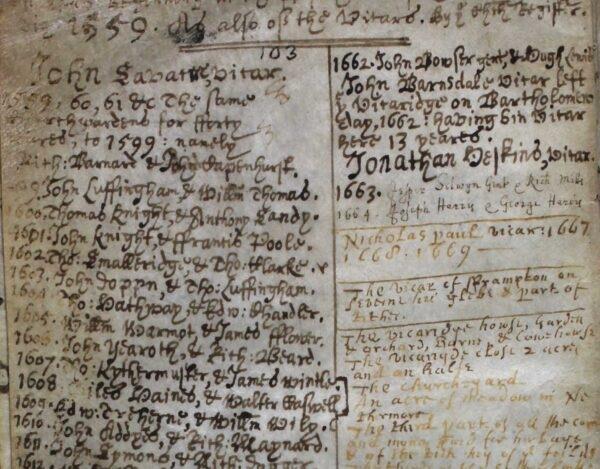 1559. As also of the Vicars. By ye Regist
103
John Lavatie, vicar.
1559, 60, 61 &c The same
for fforty
to 1599: namely
Rich: Barnar & John Dapenhurst.
John Luffingham, & Willm Thomas.
1600. Thomas Knight, & Anthony Landy.
1601. John Knight, & ffrantis Poole.
1602. Tho: Smallridge, & Tho: Clarke.
1603. John & Tho: Luffingham.
1604. Ro: Hathway, & Edw: Chandler.
1605. Willm Warmot & James fflower.
1606. John Yearoth, & Rich: Beard.
1607. & James Wintle
1608 Giles Haines, & Walter
1609. Edw: Treherne, & Willm
1610. John & Rich: Maynard.
1611. John Symons, & Rich:
1662. John Bowser gent, & Hugh
John Barnsdale Vicar left
ye Vicaridge on Bartholomew
day, 1662: having bin Vicar
here 13 yeares.
Jonathan Heskins, Vicar.
1663. Jesper Selwyn Gent & Rich
1664. Joseph Harris & George
Nicholas paul vicar: 1667
1668. 1669
The vicar of Frampton on
Severne hee Glebe & part of
tithe.
The vicaridge howse, Garden
& orchard, Barne & Cowehowse
The vicaridge close 2 acres
and an halfe
The churchyard
An acre of meadow in
The third part of all the corn
and mony paid for
& of the tith hey